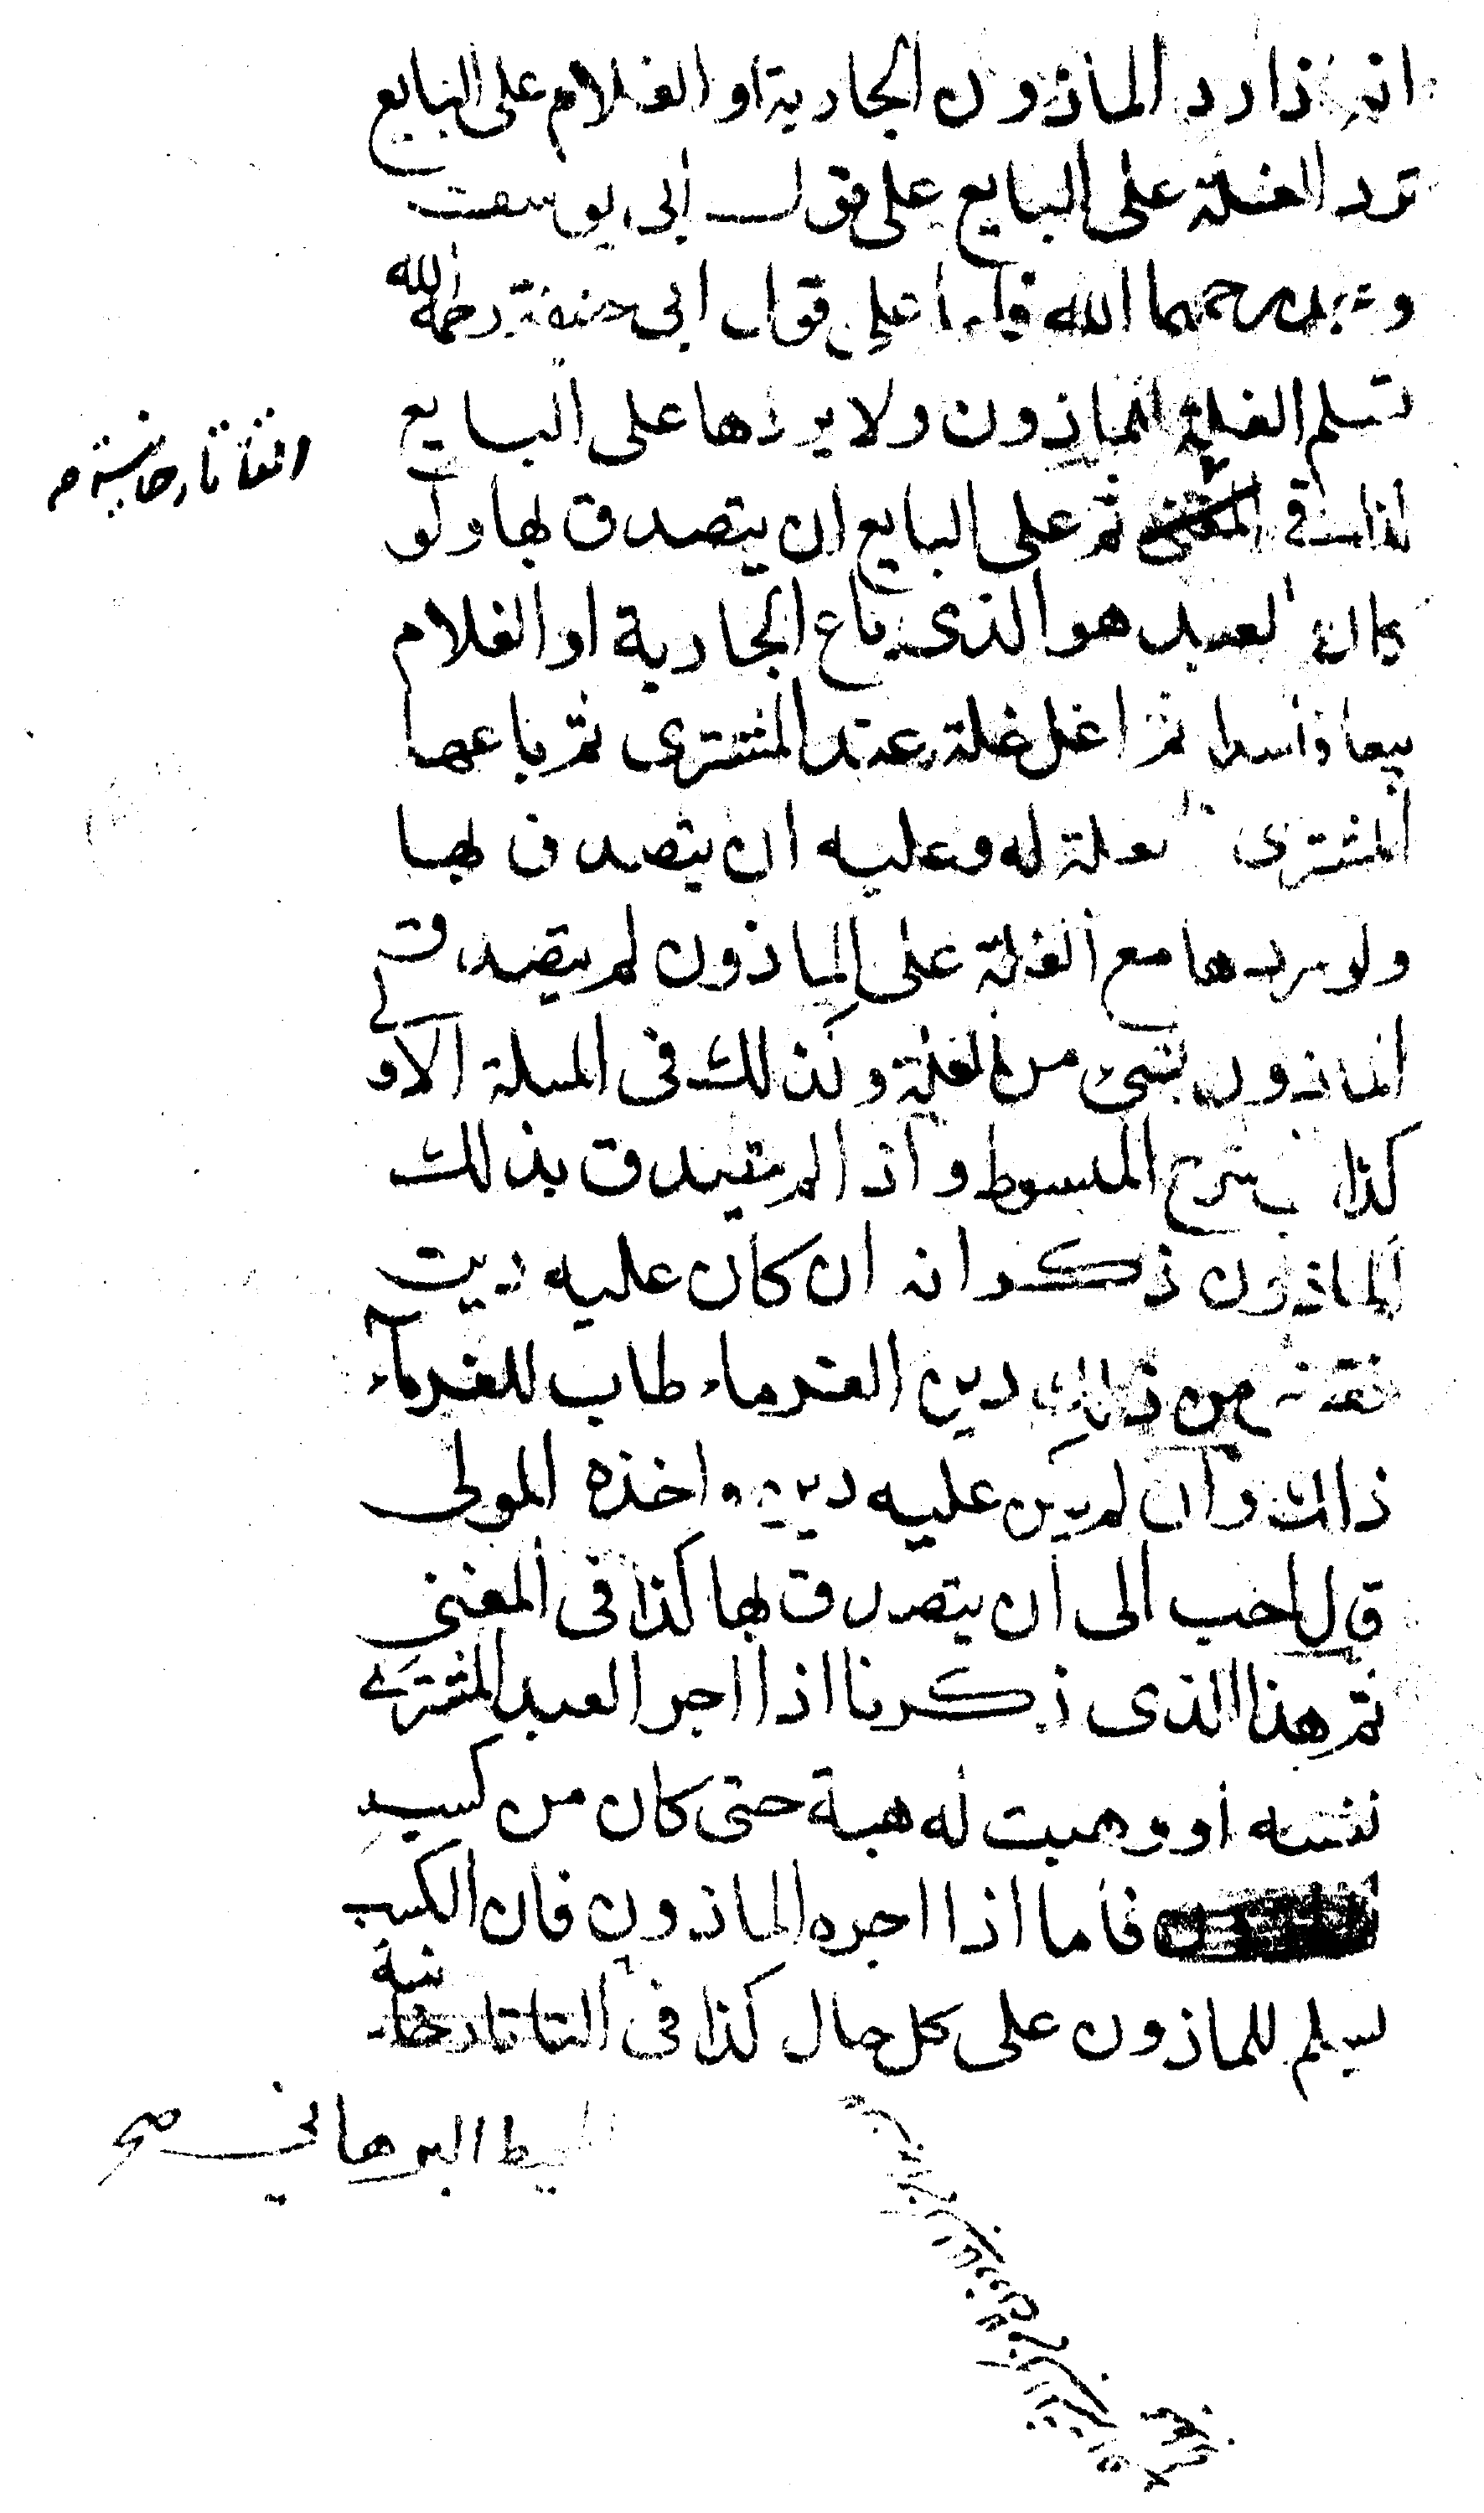 انه اذا رد الماذون الجارية او الغلام على البايع
ترد الغلة على البايع على قول ابى يوسف
ومحمد رحمهما الله فاما على قول ابى حنيفة رحمه الله
تسلم الغلة للماذون ولا يردها على البايع
كذا فى المغنى ثم على البايع ان يتصدق بها ولو
كان العبد هو الذى باع الجارية او الغلام
بيعا فاسدا ثم اغل غلة عند المشترى ثم باعها
المشترى فالغلة له وعليه ان يتصدق بها
ولو ردها مع الغلة على الماذون لم يتصدق
الماذون بشىء من الغلة وكذلك فى المسلة الاولى
كذا فى شرح المبسوط واذا لم يتصدق بذلك
الماذون ذكر انه ان كان عليه دين
فقضى من ذلك دين الغرماء طاب للغرماء
ذلك وان لم يكن عليه دين واخذه المولى
قال احب الى ان يتصدق بها كذا فى المغنى
ثم هذا الذى ذكرنا اذا اجر العبد المشترى
نفسه او وهبت له هبة حتى كان من كسبه
فاما اذا اجره الماذون فان الكسب
يسلم للماذون على كل حال كذا فى التاتارخانية
المحيط البرهاني صح